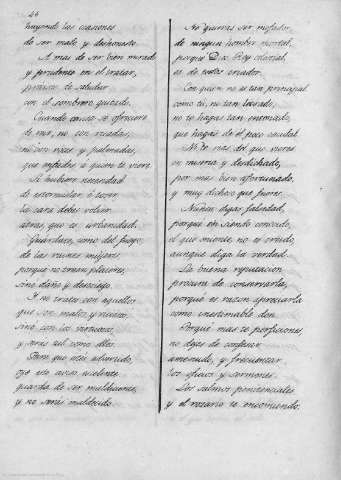 46
huyendo las ocasiones
de ser malo y deshonesto.
A mas de ser bien mirado
y prudente en el tratar,
procura te saludar
con el sombrero quitado.
Cuando acaso se ofreciere
reir, no con risadas,
ni con voces y palmadas,
que enfades a quien te viere.
Si hubiere necesidad
de estornudar ó toser
la cara debes volver
atras que es urbanidad.
Guardate, como del fuego,
de las ruines mujeres,
porque no traen placeres,
sino daño y desasosiego.
Y no trates con aquellos
que son malos y viciosos
sino con los virtuosos,
y serás tal como ellos.
Para que estes advertido,
oye este aviso
guardate de ser maldiciente,
y no serás maldecido.
No quieras ser mofador
de ningun hombre mortal,
porque Dios, Rey celestial,
es de todos criador.
Con quien no es tan principal
como tú, ni tan letrado,
no te hagas tan entonado,
que hagas de él poco caudal.
Ni te rias del que vieres
en miseria y desdichado,
por mas bien afortunado,
y muy dichoso que fueres.
Nunca digas falsedad,
porque en siendo conocido,
el que miente no es creido,
aunque diga la verdad.
La buena reputacion
procura de conservarla,
porque es razon apreciarla
como inestimable don.
Porque mas te perfeciones,
no dejes de confesar
amenudo, y frecuentar
los oficios y sermones.
Los salmos penitenciales
y el rosario te encomiendo: